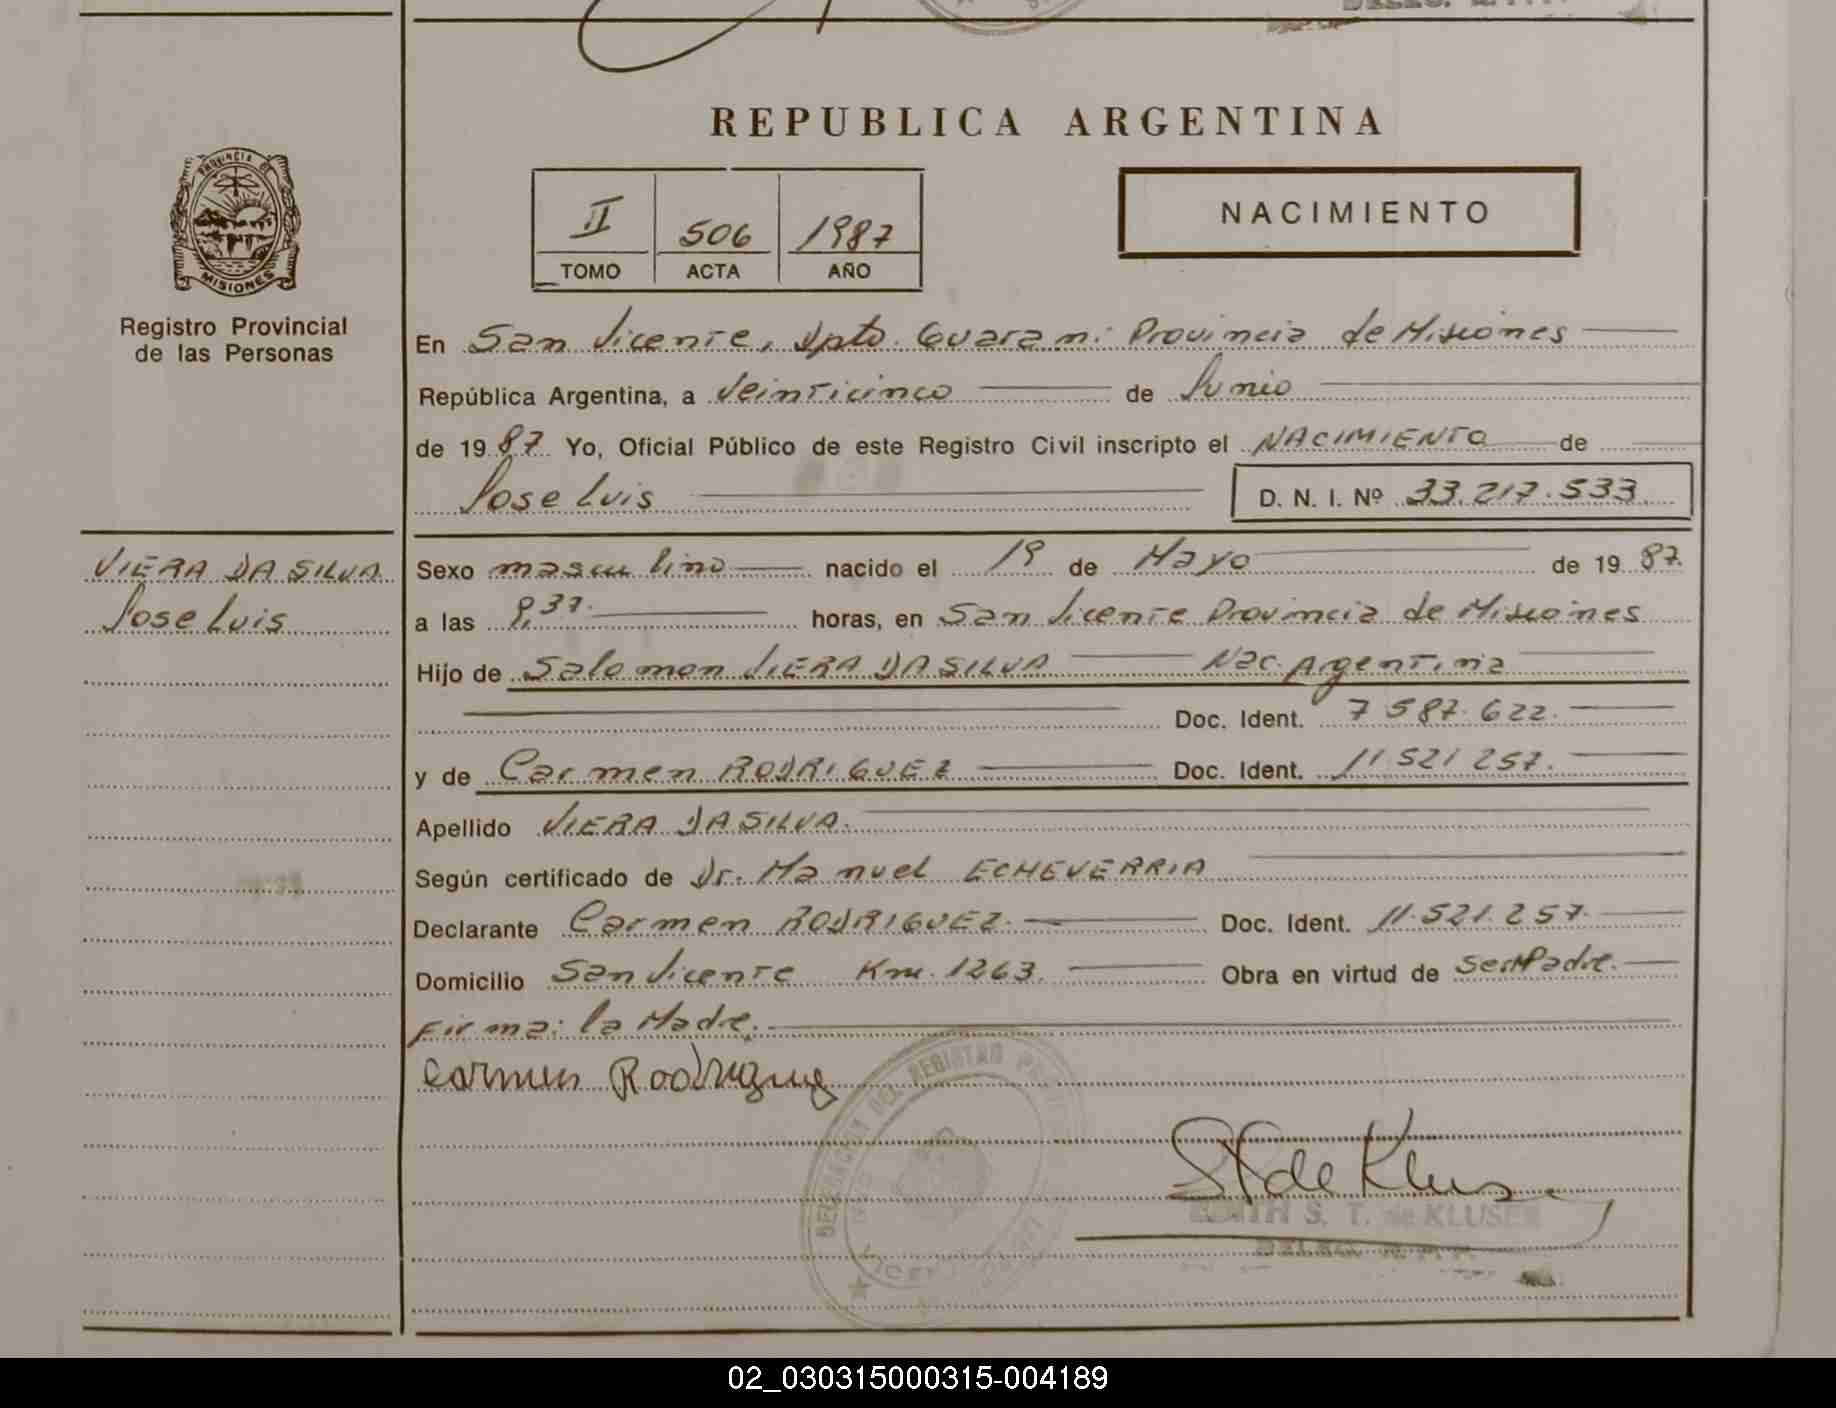 REPUBLICA ARGENTINA
PROVINCIA DE
MISIONES
Registro Provincial
de las Personas
II 506 1987
TOMO ACTA AÑO
NACIMIENTO
En San Vicente, Dpto. Guarani Provincia de Misiones
República Argentina, a Veinticinco de Junio
de 1987. Yo, Oficial Público de este Registro Civil inscripto el NACIMIENTO de
Jose Luis D. N. I. Nº 33.217.533
VIERA DA SILVA
Jose Luis
Sexo masculino nacido el 19 de Mayo de 1987.
a las 9,37. horas, en San Vicente Provincia de Misiones
Hijo de Salomon VIERA DA SILVA Nac. Argentina
Doc. Ident. 7 587.622.
y de Carmen RODRIGUEZ Doc. Ident. 11 521 257.
Apellido VIERA DA SILVA.
Según certificado de Dr. Manuel ECHEVERRIA
Declarante Carmen RODRIGUEZ. Doc. Ident. 11.521.257.
Domicilio San Vicente Km. 1263. Obra en virtud de
Firma: la Madre.
Carmen Rodriguez
DELEGACION DEL REGISTRO
S T de Kluse
EDITH S. T. de KLUSER
DELEG.
02_030315000315-004189